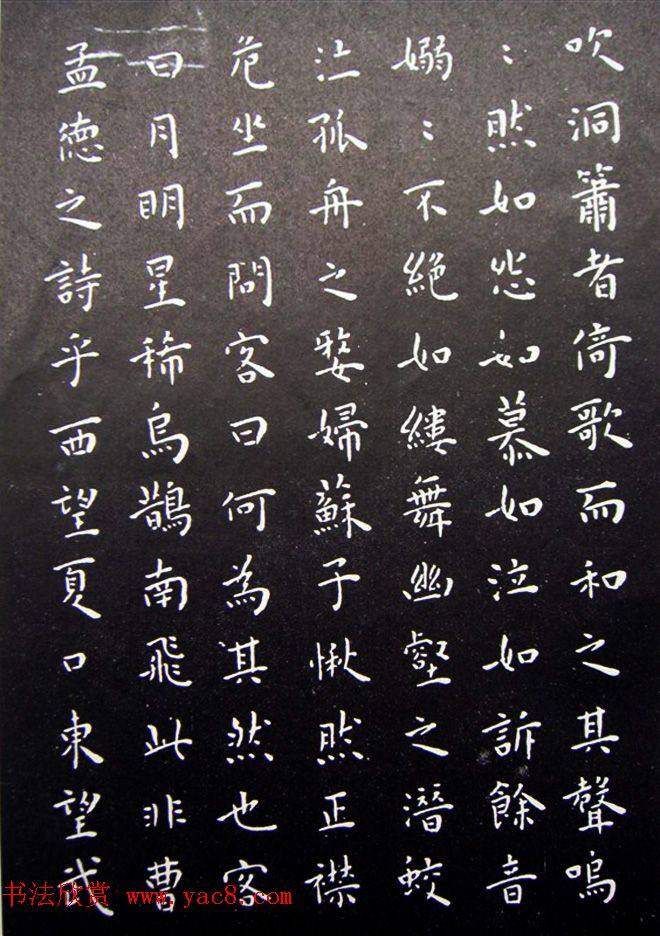 吹洞簫者倚歌而和之其聲嗚
：然如怨如慕如泣如訴餘音
嫋：不絕如縷舞幽壑之潛蛟
泣孤舟之嫠婦蘇子愀然正襟
危坐而問客曰何為其然也客
曰月明星稀烏鵲南飛此非曹
孟德之詩乎西望夏口東望武
书法欣赏 www.yac8.com